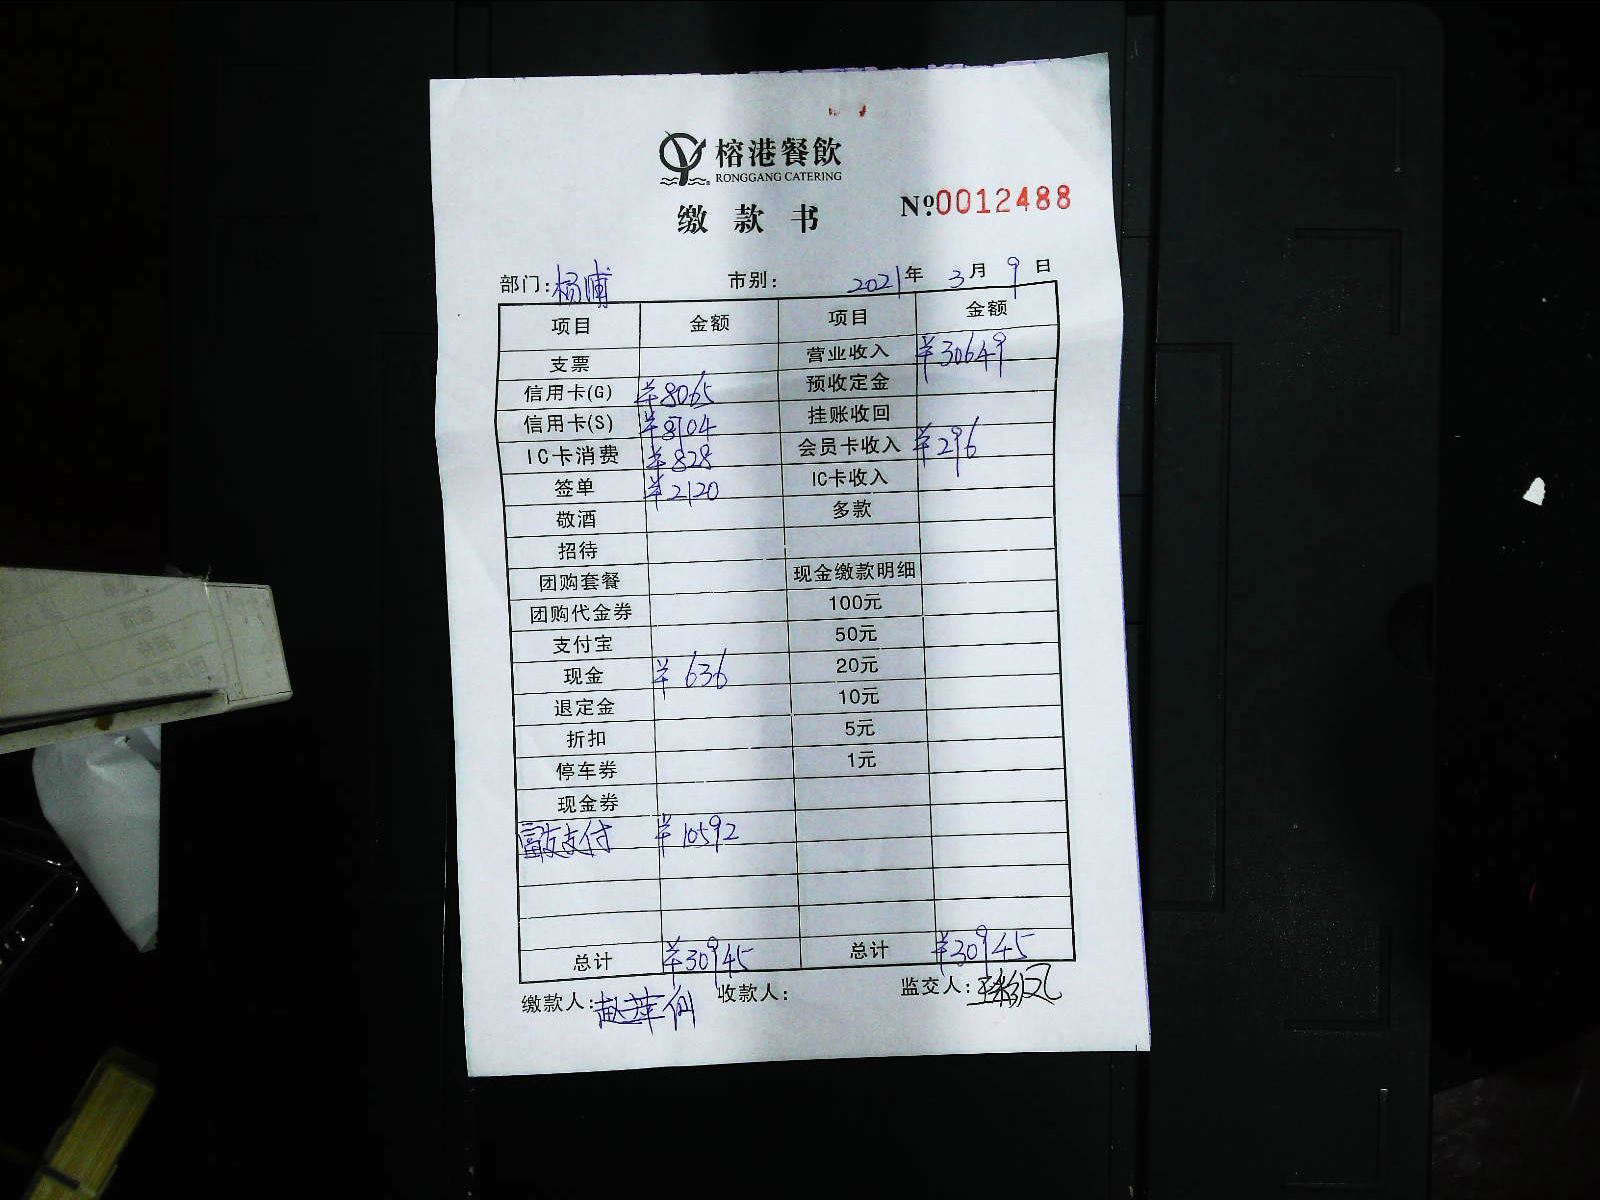 榕港餐飲
RONGGANG CATERING
缴款书
Nº0012488
部门:杨浦 市别: 2021年 3月 9日
项目 金额 项目 金额
支票 营业收入 ¥30649
信用卡(G) ¥8065 预收定金
信用卡(S) ¥8704 挂账收回
IC卡消费 ¥828 会员卡收入 ¥296
签单 ¥2120 IC卡收入
敬酒 多款
招待
团购套餐 现金缴款明细
团购代金券 100元
支付宝 50元
现金 ¥636 20元
退定金 10元
折扣 5元
停车券 1元
现金券
富友支付 ¥10592
总计 ¥30945 总计 ¥30945
缴款人: 收款人: 监交人: